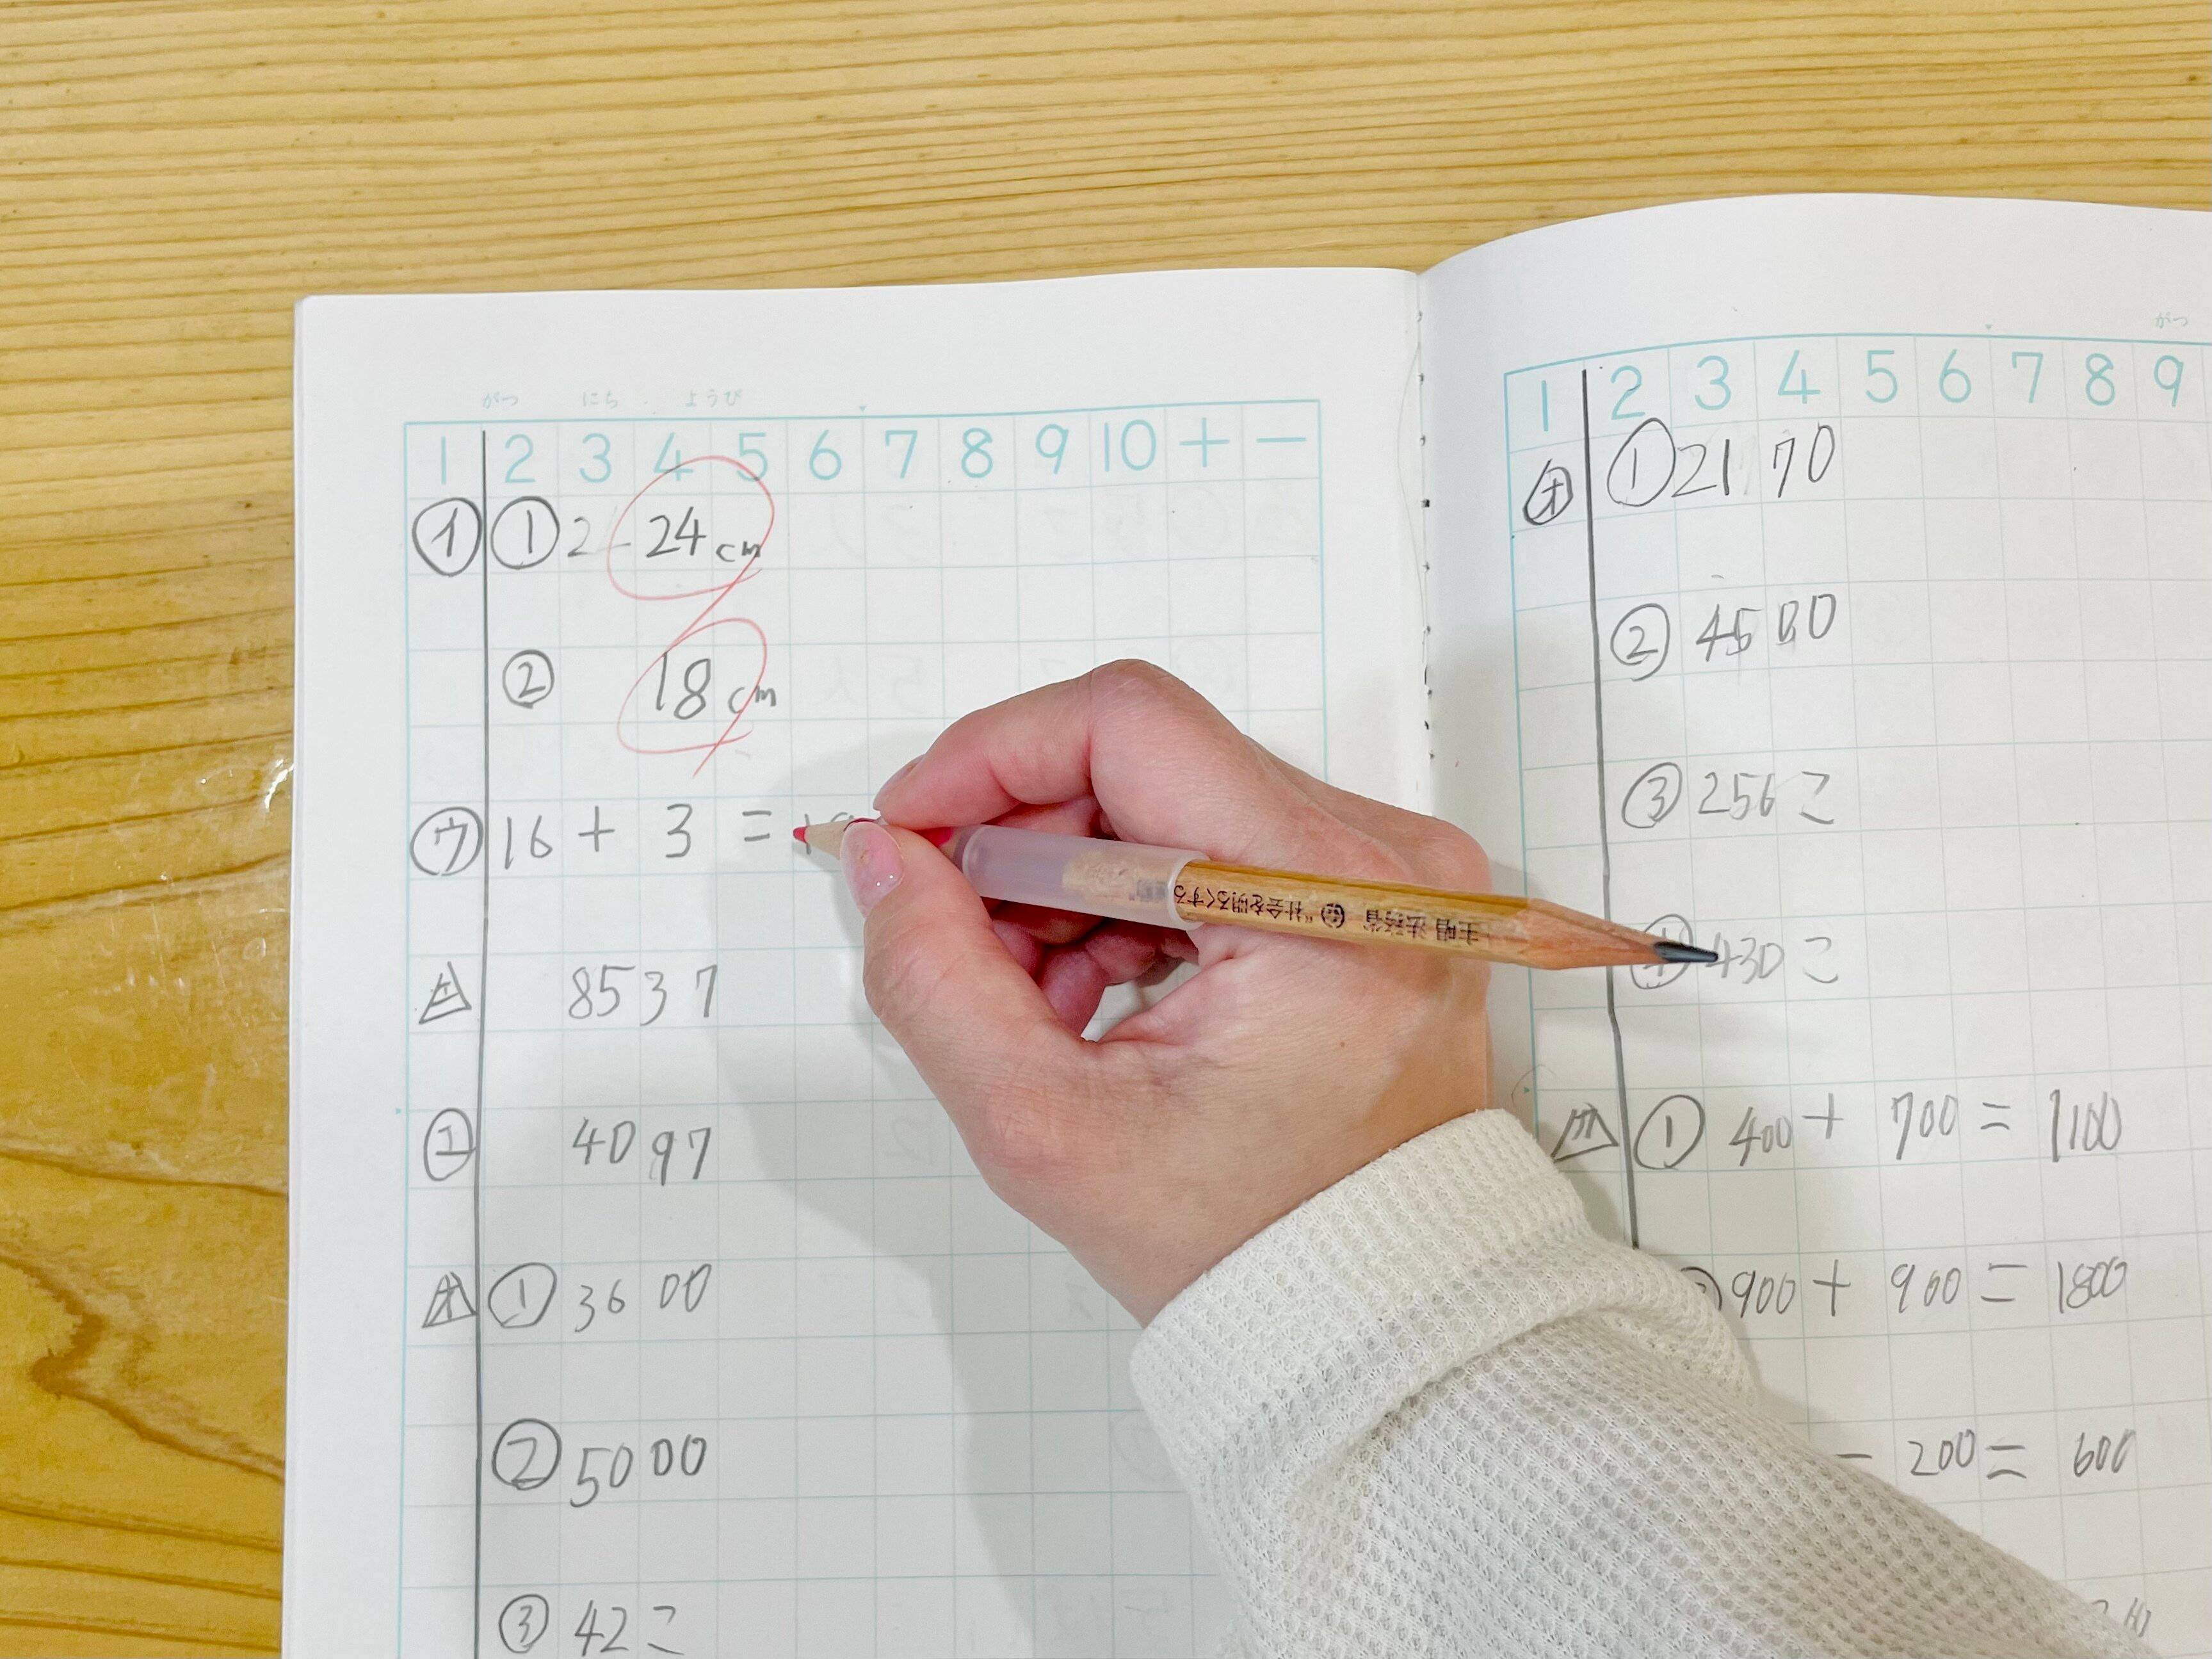 がつ にち ようび
1 2 3 4 5 6 7 8 9 10 + −
① ① 2 24cm
② 18cm
ウ 16 + 3 =
エ 8537
エ 4097
オ ① 3600
② 5000
③ 42こ
がつ
1 2 3 4 5 6 7 8 9
オ ① 2170
② 4500
③ 256こ
④ 430こ
① 400 + 700 = 1100
900 + 900 = 1800
− 200 = 600
主唱 法務省 "社会を明るくする